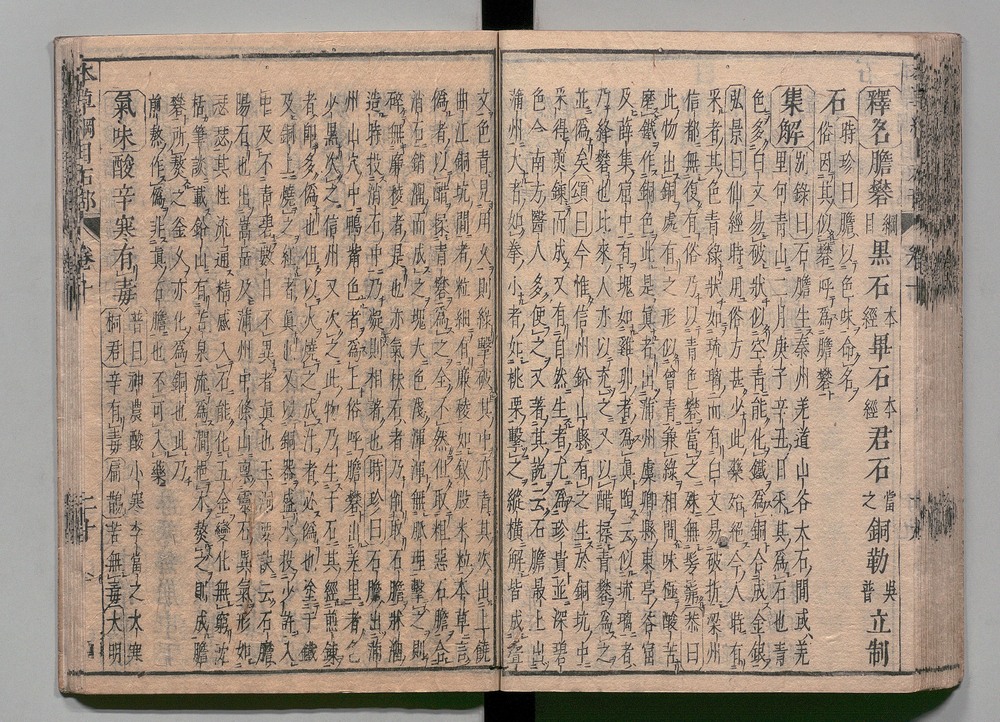 釋名膽礬綱目黑石本經畢石本經君石當之銅勒吳普立制
石時珍曰膽以色味命名
俗因其似礬呼為膽礬
集解別錄曰石膽生秦州羌道山谷大石間或羌
里句青山二月庚子辛丑日采其為石也青
色多白文易破狀似空青能化鐵為銅合成金銀
弘景曰仙經時用俗方甚少此藥殆絕今人時有
采者其色青綠狀如琉璃而有白文易破折梁州
信都無復有俗乃以青色礬當之殊無髣髴恭曰
此物出銅處有之形似曾青兼綠相間味極酸苦
磨鐵作銅色此是真者出蒲州虞卿縣東亭谷窟
及薛集窟中有塊如雞卵者為真陶云似琉璃者
乃絳礬也比來人亦以充之又以醋揉青礬為之
並偽矣頌曰今惟信州鉛山縣有之生於銅坑中
采得煎煉而成又有自然生者尤為珍貴並深碧
色今南方醫人多使之又著其說云石膽最上出
蒲州大者如拳小者如桃栗擊之縱橫解皆成疊
文色青見風久則綠擊破其中亦青其次出上饒
曲江銅坑間者粒細有廉稜如釵股米粒本草言
偽者以醋揉青礬為之全不然但取粗惡石膽合
消石銷溜而成塊大色淺渾渾無脈理擊之則
碎無廉稜者是也亦有挾石者乃削取石膽牀溜
造時投消石中及凝則相著也時珍曰石膽出蒲
州山穴中鴨觜色者為上俗呼膽礬出羌里者色
少黑次之信州又次之此物乃生于石其經煎鍊
者即多偽也但以火燒之成汁者必偽也塗于鐵
及銅上燒之紅者真也又以銅器盛水投少許入
中及不青碧數日不異者真也玉洞要訣云石膽
陽石也出嵩岳及蒲州中條山稟靈石異氣形如
瑟瑟其性流通精感入石能化五金變化無窮沈
括筆談載鉛山有苦泉流為澗挹水熬之則成膽
礬所熬之釜久亦化為銅也此乃
煎熬作偽非真石膽也不可入藥
氣味酸辛寒有毒普曰神農酸小寒李當之大寒
桐君辛有毒扁鵲苦無毒大明
本草綱目石部 卷十 二十